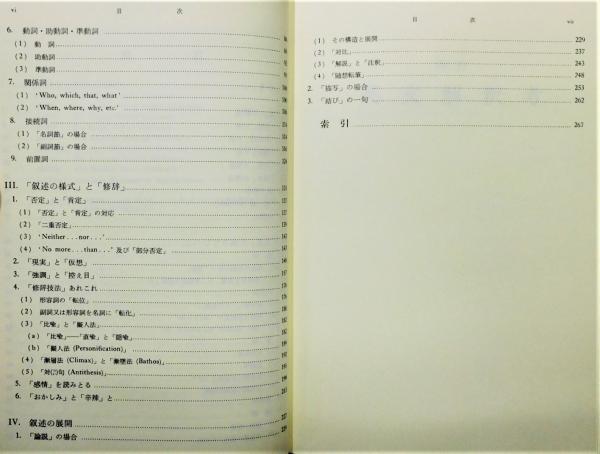 vi 目 次
6. 動詞・助動詞・準動詞
(1) 動 詞
(2) 助動詞
(3) 準動詞
7. 関係詞
(1) 'Who, which, that, what'
(2) 'When, where, why, etc.'
8. 接続詞
(1) 「名詞節」の場合
(2) 「副詞節」の場合
9. 前置詞
III. 「叙述の様式」と「修辞」
1. 「否定」と「肯定」
(1) 「否定」と「肯定」の対応
(2) 「二重否定」
(3) 'Neither...nor...'
(4) 'No more...than...' 及び「部分否定」
2. 「現実」と「仮想」
3. 「強調」と「控え目」
4. 「修辞技法」あれこれ
(1) 形容詞の「転位」
(2) 副詞又は形容詞を名詞に「転化」
(3) 「比喩」と「擬人法」
(a) 「比喩」—「直喩」と「隠喩」
(b) 「擬人法 (Personification)」
(4) 「漸層法 (Climax)」と「漸堕法 (Bathos)」
(5) 「対句 (Antithesis)」
5. 「感情」を読みとる
6. 「おかしみ」と「辛辣」と
IV. 叙述の展開
1. 「論説」の場合
目 次 vii
(1) その構造と展開 229
(2) 「対比」 237
(3) 「解説」と「注釈」 243
(4) 「随想転筆」 248
2. 「描写」の場合 253
3. 「結び」の一句 262
索 引 267